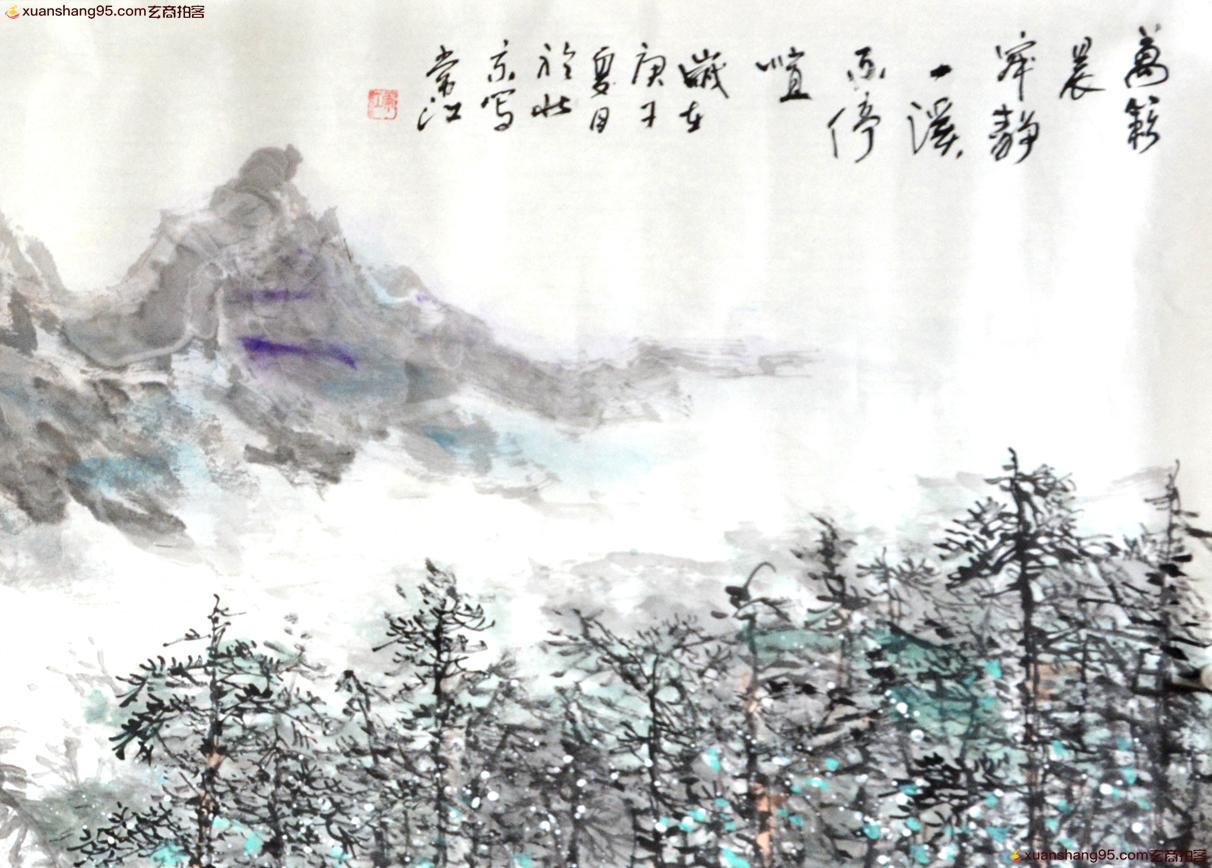 xuanshang95.com玄商拍客
萬籟
晨
寧靜
一溪
不停
喧
歲在
庚子
夏日
於北
京寫
常江
xuanshang95.com玄商拍客